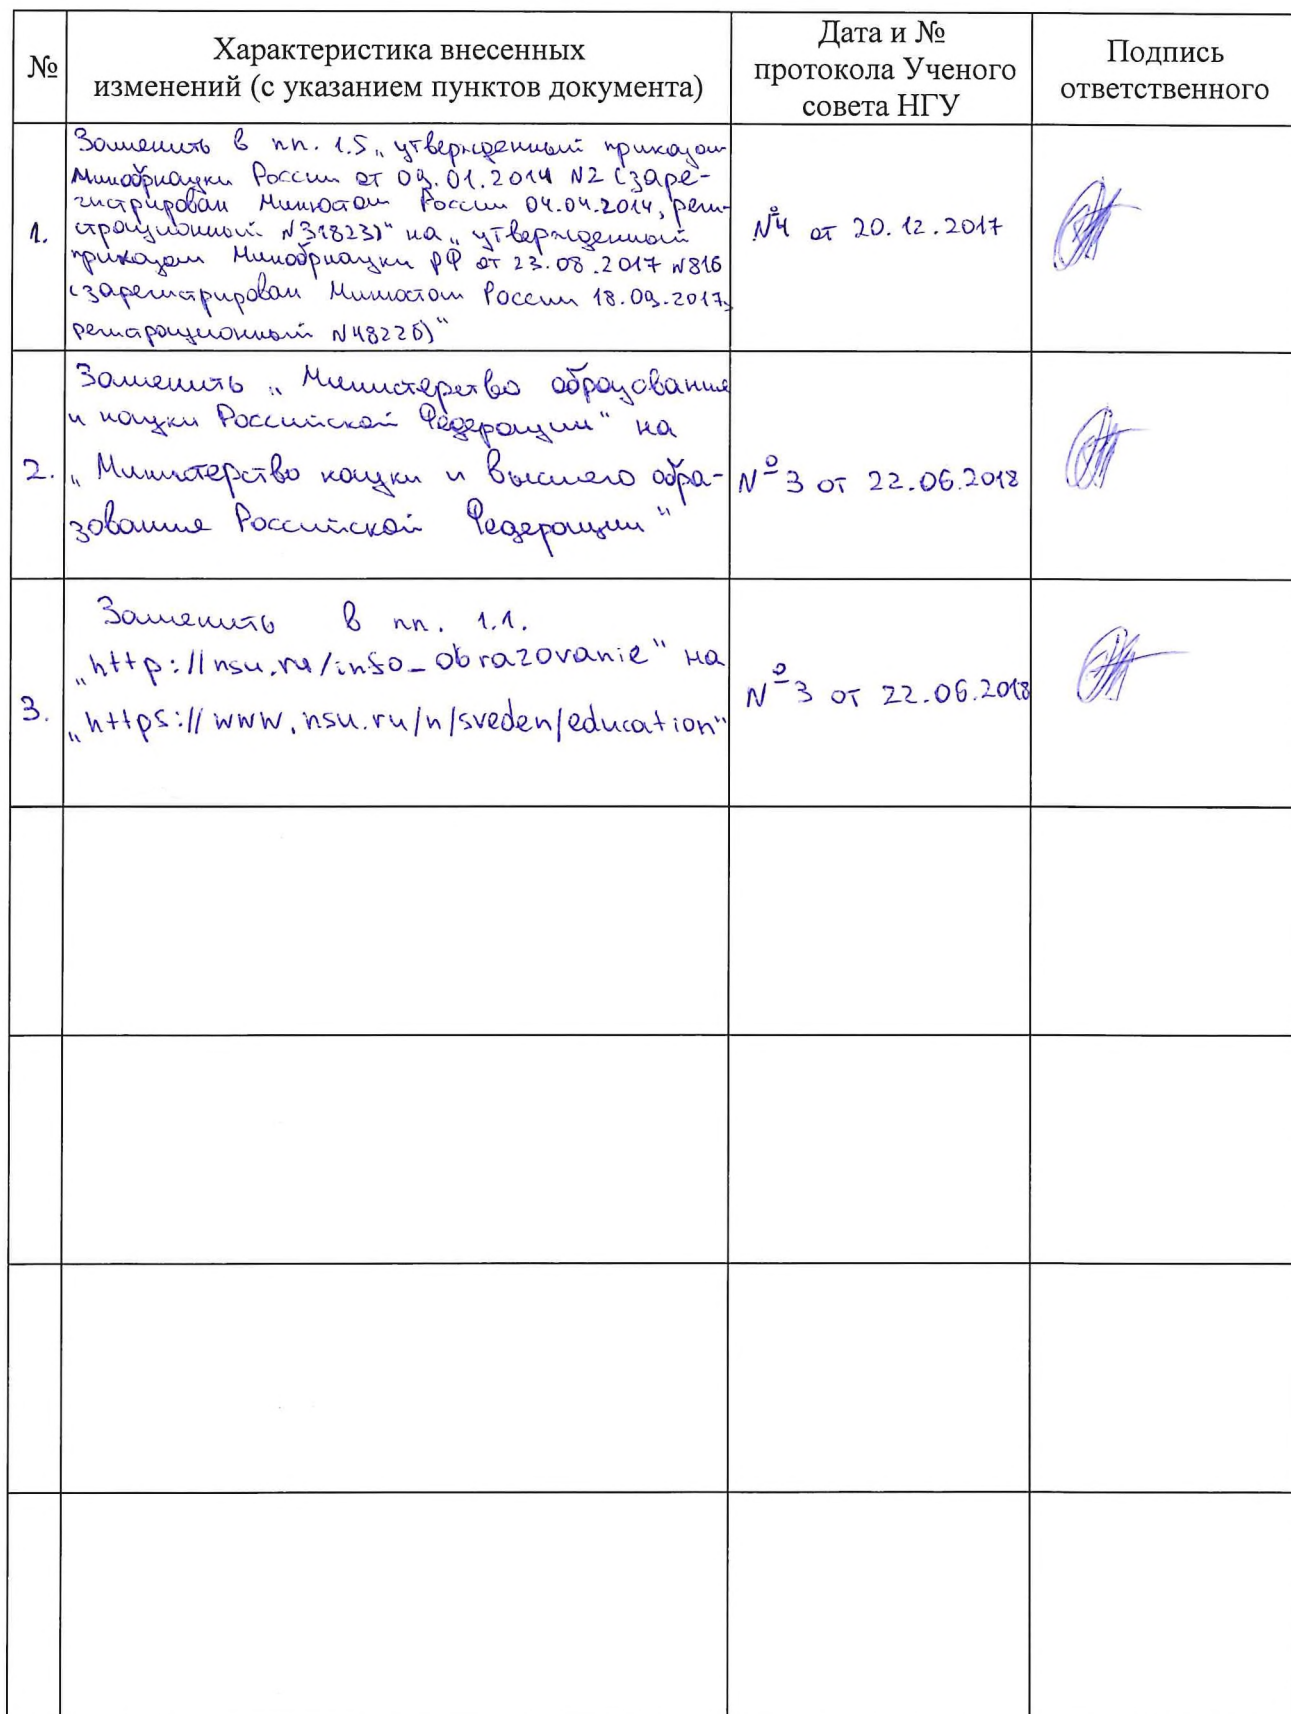 №
Характеристика внесенных
изменений (с указанием пунктов документа)
Дата и №
протокола Ученого
совета НГУ
Подпись
ответственного
1.
Заменить в пп. 1.5 „утвержденный приказом
Минобрнауки России от 09.01.2014 N2 (заре-
гистрирован Минюстом России 04.04.2014, реги-
страционный N31823)“ на „утвержденный
приказом Минобрнауки РФ от 23.08.2017 N816
(зарегистрирован Минюстом России 18.09.2017,
регистрационный N48226)“
№4 от 20.12.2017
2.
Заменить „Министерство образования
и науки Российской Федерации“ на
„Министерство науки и высшего обра-
зования Российской Федерации“
№3 от 22.06.2018
3.
Заменить в пп. 1.1.
„http://nsu.ru/info_obrazovanie“ на
„https://www.nsu.ru/n/sveden/education“
№3 от 22.06.2018